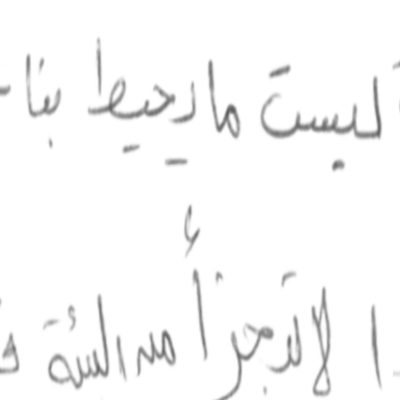 ليست ما يحيط بنا
لا تتجزأ من البيئة